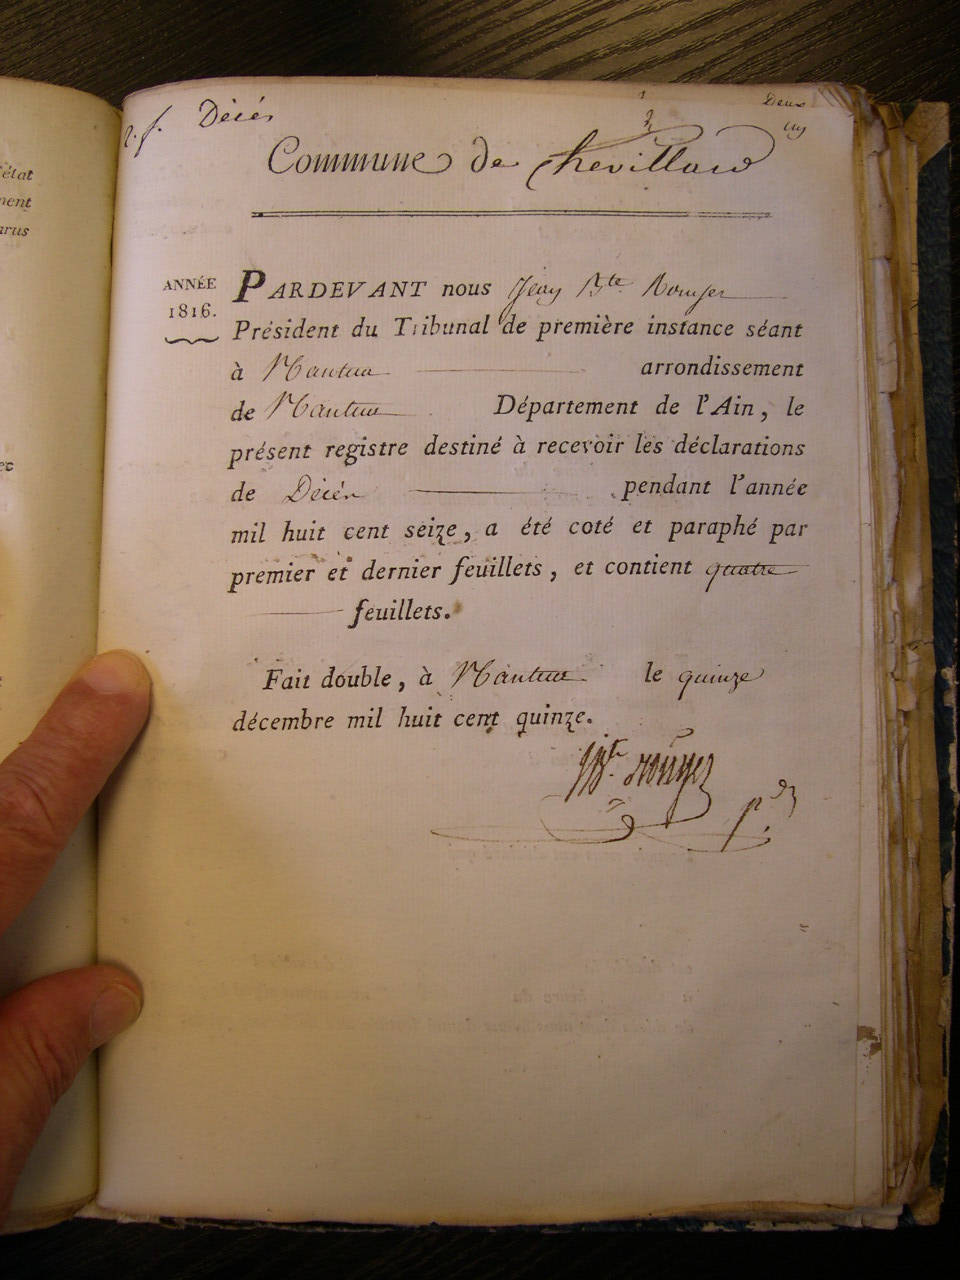 Décés
Commune de Chevillard
ANNÉE
1816.
PARDEVANT nous Jean Bte. Rouyer
Président du Tribunal de première instance séant
à Nantua arrondissement
de Nantua Département de l'Ain, le
présent registre destiné à recevoir les déclarations
de Décés pendant l'année
mil huit cent seize, a été coté et paraphé par
premier et dernier feuillets, et contient quatre
feuillets.
Fait double, à Nantua le quinze
décembre mil huit cent quinze.
JBte. Rouyer
pdt
état